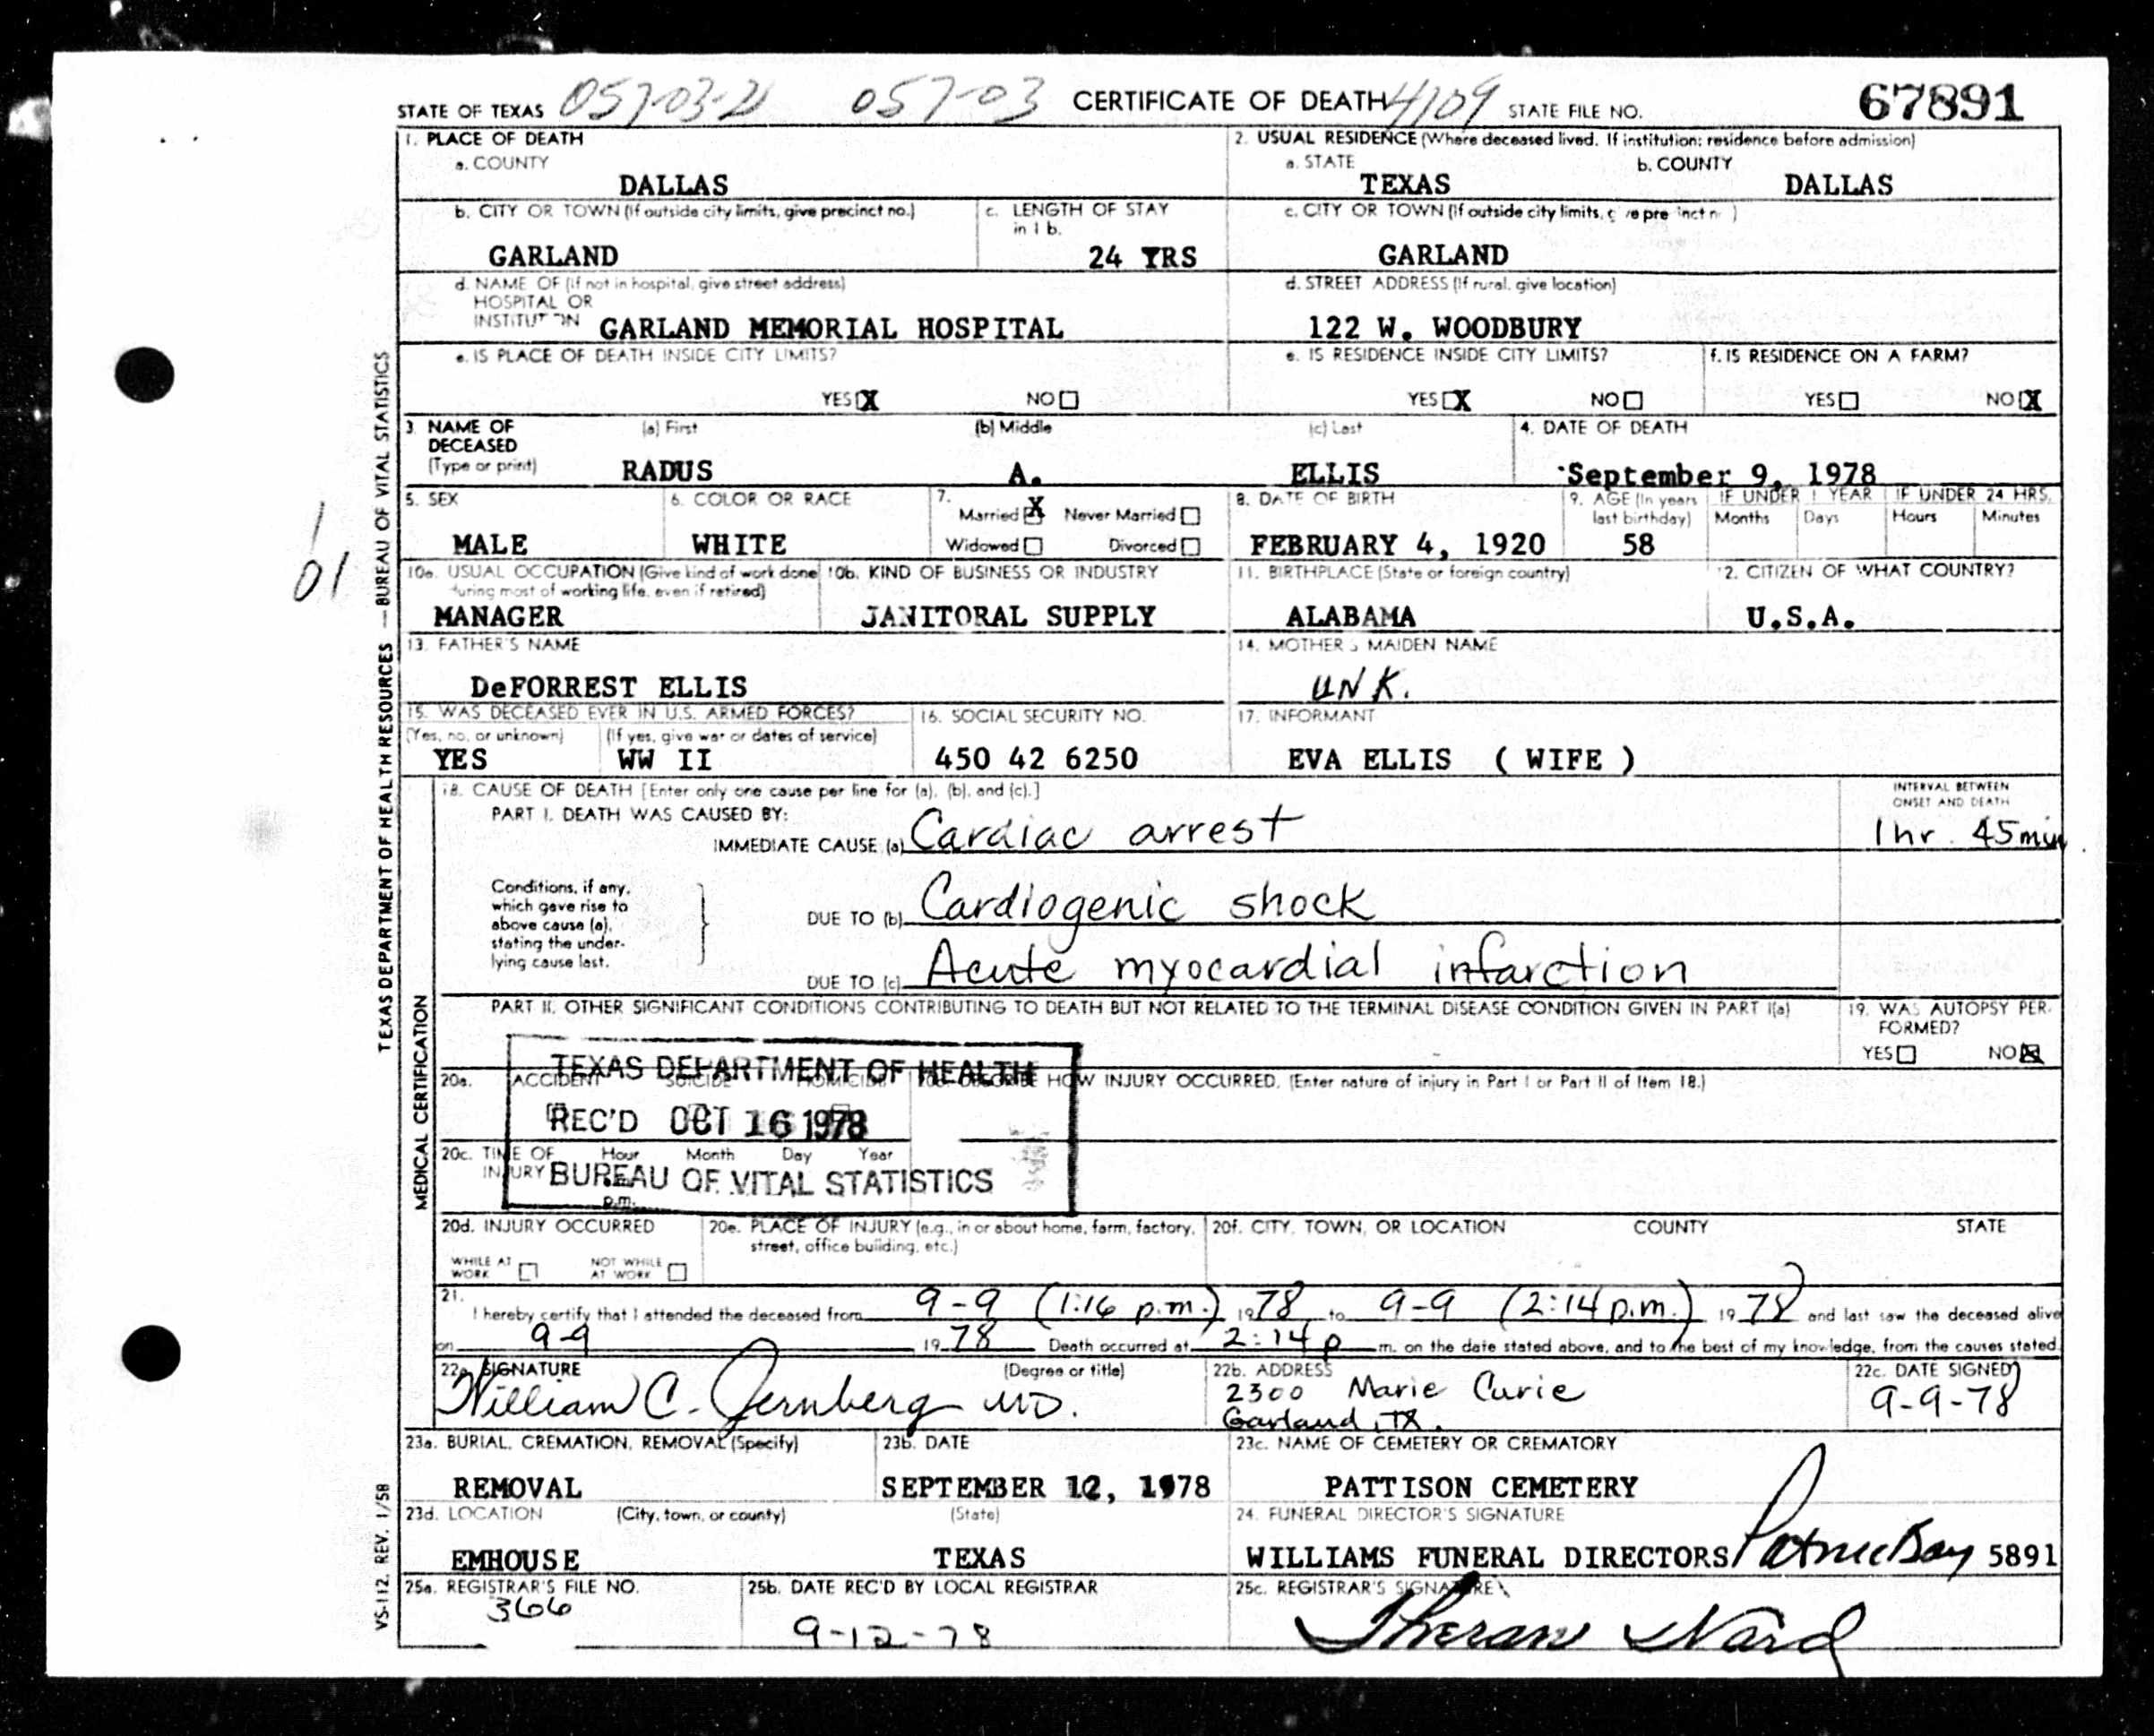 STATE OF TEXAS 057-03-21 057-03 CERTIFICATE OF DEATH 4109 STATE FILE NO. 67891
1. PLACE OF DEATH
a. COUNTY
DALLAS
2. USUAL RESIDENCE (Where deceased lived. If institution: residence before admission)
a. STATE b. COUNTY
TEXAS DALLAS
b. CITY OR TOWN (If outside city limits, give precinct no.)
GARLAND
c. LENGTH OF STAY
in 1 b.
24 YRS
c. CITY OR TOWN (If outside city limits,
GARLAND
d. NAME OF (If not in hospital, give street address)
HOSPITAL OR
INSTITUTION GARLAND MEMORIAL HOSPITAL
d. STREET ADDRESS (If rural, give location)
122 W. WOODBURY
e. IS PLACE OF DEATH INSIDE CITY LIMITS?
YES X NO
e. IS RESIDENCE INSIDE CITY LIMITS?
YES X NO
f. IS RESIDENCE ON A FARM?
YES NO X
3. NAME OF
DECEASED
(Type or print)
(a) First (b) Middle (c) Last
RADUS A. ELLIS
4. DATE OF DEATH
September 9, 1978
5. SEX
MALE
6. COLOR OR RACE
WHITE
7.
Married X Never Married
Widowed Divorced
8. DATE OF BIRTH
FEBRUARY 4, 1920
9. AGE (In years
last birthday)
58
IF UNDER 1 YEAR
Months Days
IF UNDER 24 HRS.
Hours Minutes
10a. USUAL OCCUPATION (Give kind of work done
during most of working life, even if retired)
MANAGER
10b. KIND OF BUSINESS OR INDUSTRY
JANITORAL SUPPLY
11. BIRTHPLACE (State or foreign country)
ALABAMA
12. CITIZEN OF WHAT COUNTRY?
U.S.A.
13. FATHER'S NAME
DeFORREST ELLIS
14. MOTHER'S MAIDEN NAME
UNK.
15. WAS DECEASED EVER IN U.S. ARMED FORCES?
(Yes, no, or unknown) (If yes, give war or dates of service)
YES WW II
16. SOCIAL SECURITY NO.
450 42 6250
17. INFORMANT
EVA ELLIS ( WIFE )
18. CAUSE OF DEATH [Enter only one cause per line for (a), (b), and (c).]
INTERVAL BETWEEN
ONSET AND DEATH
PART I. DEATH WAS CAUSED BY:
IMMEDIATE CAUSE (a) Cardiac arrest 1 hr. 45 min
Conditions, if any,
which gave rise to
above cause (a),
stating the under-
lying cause last.
DUE TO (b) Cardiogenic shock
DUE TO (c) Acute myocardial infarction
PART II. OTHER SIGNIFICANT CONDITIONS CONTRIBUTING TO DEATH BUT NOT RELATED TO THE TERMINAL DISEASE CONDITION GIVEN IN PART I(a)
19. WAS AUTOPSY PER-
FORMED?
YES NO X
20a. ACCIDENT SUICIDE HOMICIDE
20b. DESCRIBE HOW INJURY OCCURRED. (Enter nature of injury in Part I or Part II of Item 18.)
TEXAS DEPARTMENT OF HEALTH
REC'D OCT 16 1978
BUREAU OF VITAL STATISTICS
20c. TIME OF
INJURY
Hour Month Day Year
p.m.
20d. INJURY OCCURRED
WHILE AT
WORK
NOT WHILE
AT WORK
20e. PLACE OF INJURY (e.g., in or about home, farm, factory,
street, office building, etc.)
20f. CITY, TOWN, OR LOCATION COUNTY STATE
21.
I hereby certify that I attended the deceased from 9-9 (1:16 p.m.) 1978 to 9-9 (2:14 p.m.) 1978 and last saw the deceased alive
on 9-9 1978 Death occurred at 2:14 p m. on the date stated above, and to the best of my knowledge, from the causes stated.
22a. SIGNATURE (Degree or title)
William C. Jernberg MD.
22b. ADDRESS
2300 Marie Curie
Garland, TX.
22c. DATE SIGNED
9-9-78
23a. BURIAL, CREMATION, REMOVAL (Specify)
REMOVAL
23b. DATE
SEPTEMBER 12, 1978
23c. NAME OF CEMETERY OR CREMATORY
PATTISON CEMETERY
23d. LOCATION (City, town, or county) (State)
EMHOUSE TEXAS
24. FUNERAL DIRECTOR'S SIGNATURE
WILLIAMS FUNERAL DIRECTORS 5891
25a. REGISTRAR'S FILE NO.
366
25b. DATE REC'D BY LOCAL REGISTRAR
9-12-78
25c. REGISTRAR'S SIGNATURE
Theran Ward
TEXAS DEPARTMENT OF HEALTH RESOURCES — BUREAU OF VITAL STATISTICS
MEDICAL CERTIFICATION
VS-112, REV. 1/58
1
01